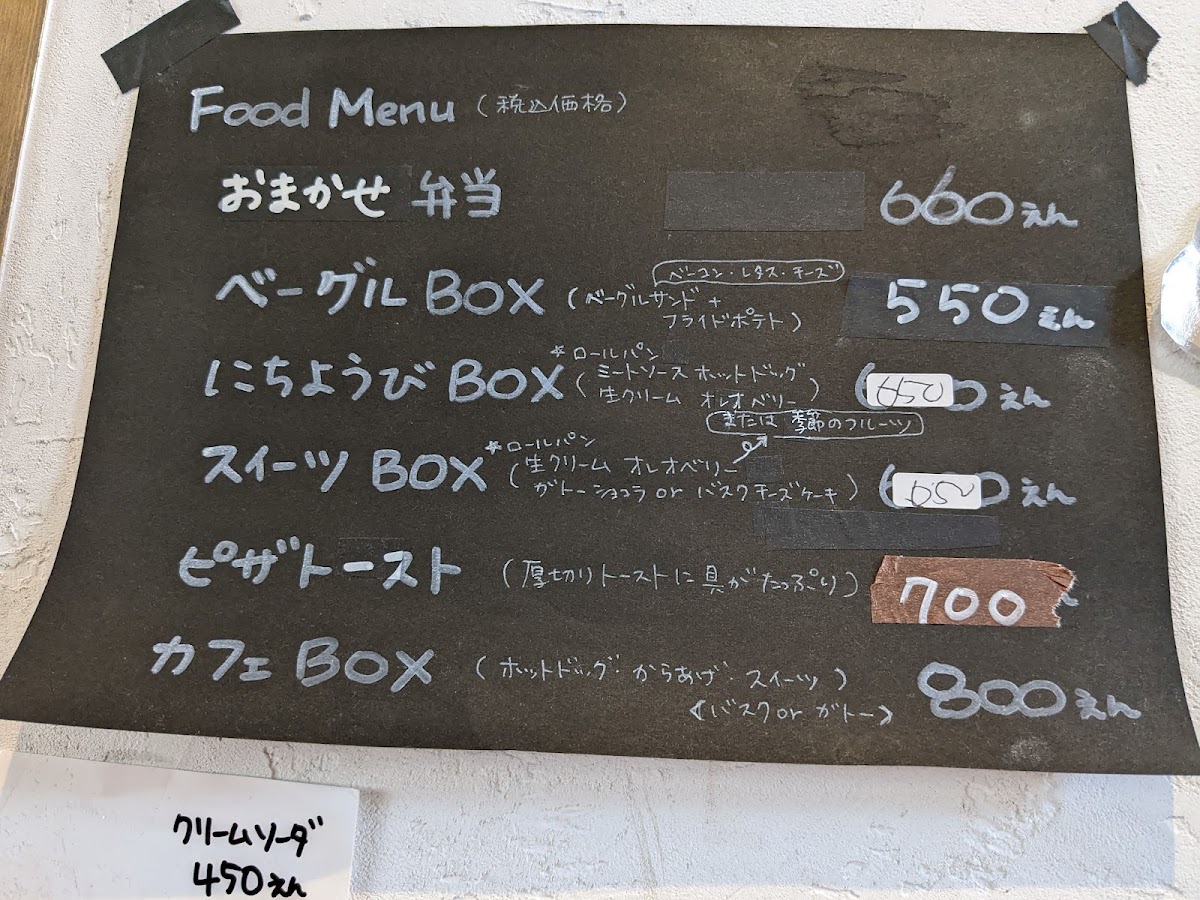 Food Menu (税込価格)
おまかせ 弁当 660えん
ベーコン・レタス・チーズ
ベーグル BOX (ベーグルサンド + 550えん
フライドポテト)
★ロールパン
にちようび BOX (ミートソース ホットドッグ 650えん
生クリーム オレオベリー)
または 季節のフルーツ
★ロールパン
スイーツ BOX (生クリーム オレオベリー
ガトーショコラ or バスクチーズケーキ) 650えん
ピザトースト (厚切りトーストに具がたっぷり) 700
カフェ BOX (ホットドッグ・からあげ・スイーツ) 800えん
<バスク or ガトー>
クリームソーダ
450えん